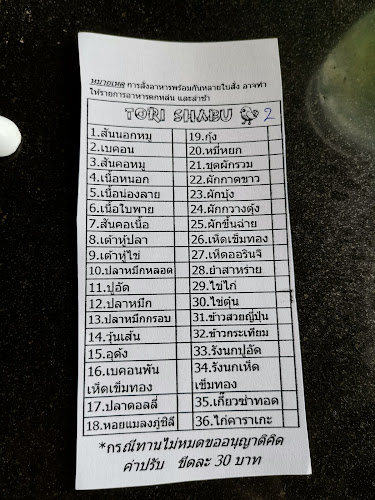 หมายเหตุ การสั่งอาหารพร้อมกันหลายใบสั่ง อาจทำ
ให้รายการอาหารตกหล่น และล่าช้า
TORI SHABU 2
1.สันนอกหมู
2.เบคอน
3.สันคอหมู
4.เนื้อหนอก
5.เนื้อน่องลาย
6.เนื้อใบพาย
7.สันคอเนื้อ
8.เต้าหู้ปลา
9.เต้าหู้ไข่
10.ปลาหมึกหลอด
11.ปูอัด
12.ปลาหมึก
13.ปลาหมึกกรอบ
14.วุ้นเส้น
15.อุด้ง
16.เบคอนพัน
เห็ดเข็มทอง
17.ปลาดอลลี่
18.หอยแมลงภู่ชิลี
19.กุ้ง
20.หมี่หยก
21.ชุดผักรวม
22.ผักกาดขาว
23.ผักบุ้ง
24.ผักกวางตุ้ง
25.ผักขึ้นฉ่าย
26.เห็ดเข็มทอง
27.เห็ดออรินจิ
28.ยำสาหร่าย
29.ไข่ไก่
30.ไข่ตุ๋น
31.ข้าวสวยญี่ปุ่น
32.ข้าวกระเทียม
33.รังนกปูอัด
34.รังนกเห็ด
เข็มทอง
35.เกี๊ยวซ่าทอด
36.ไก่คาราเกะ
*กรณีทานไม่หมดขออนุญาติคิด
ค่าปรับ ขีดละ 30 บาท